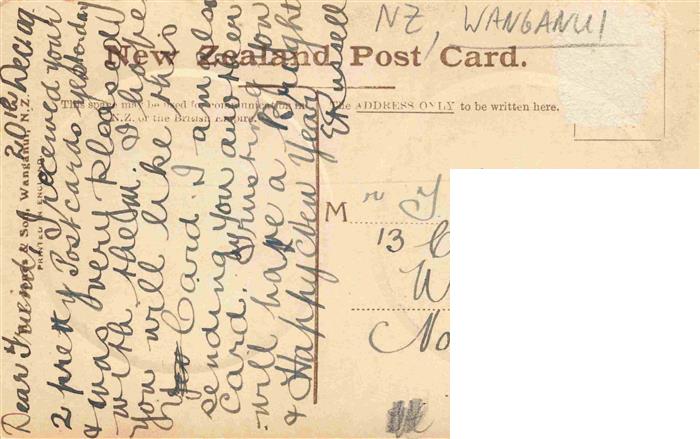 NZ, WANGANUI
New Zealand Post Card.
This space may be used for communication in
N.Z. or the British Empire.
The ADDRESS ONLY to be written here.
& Son, Wanganui, N.Z.
PRINTED IN ENGLAND
20th Dec. 09
Dear Friend, I received your
2 pretty Postcards yesterday
& was very pleased
with them. I hope
you will like this
Card. I am also
sending you another
card. Trusting you
will have a Bright
& Happy New Year
E Russell
M r
13